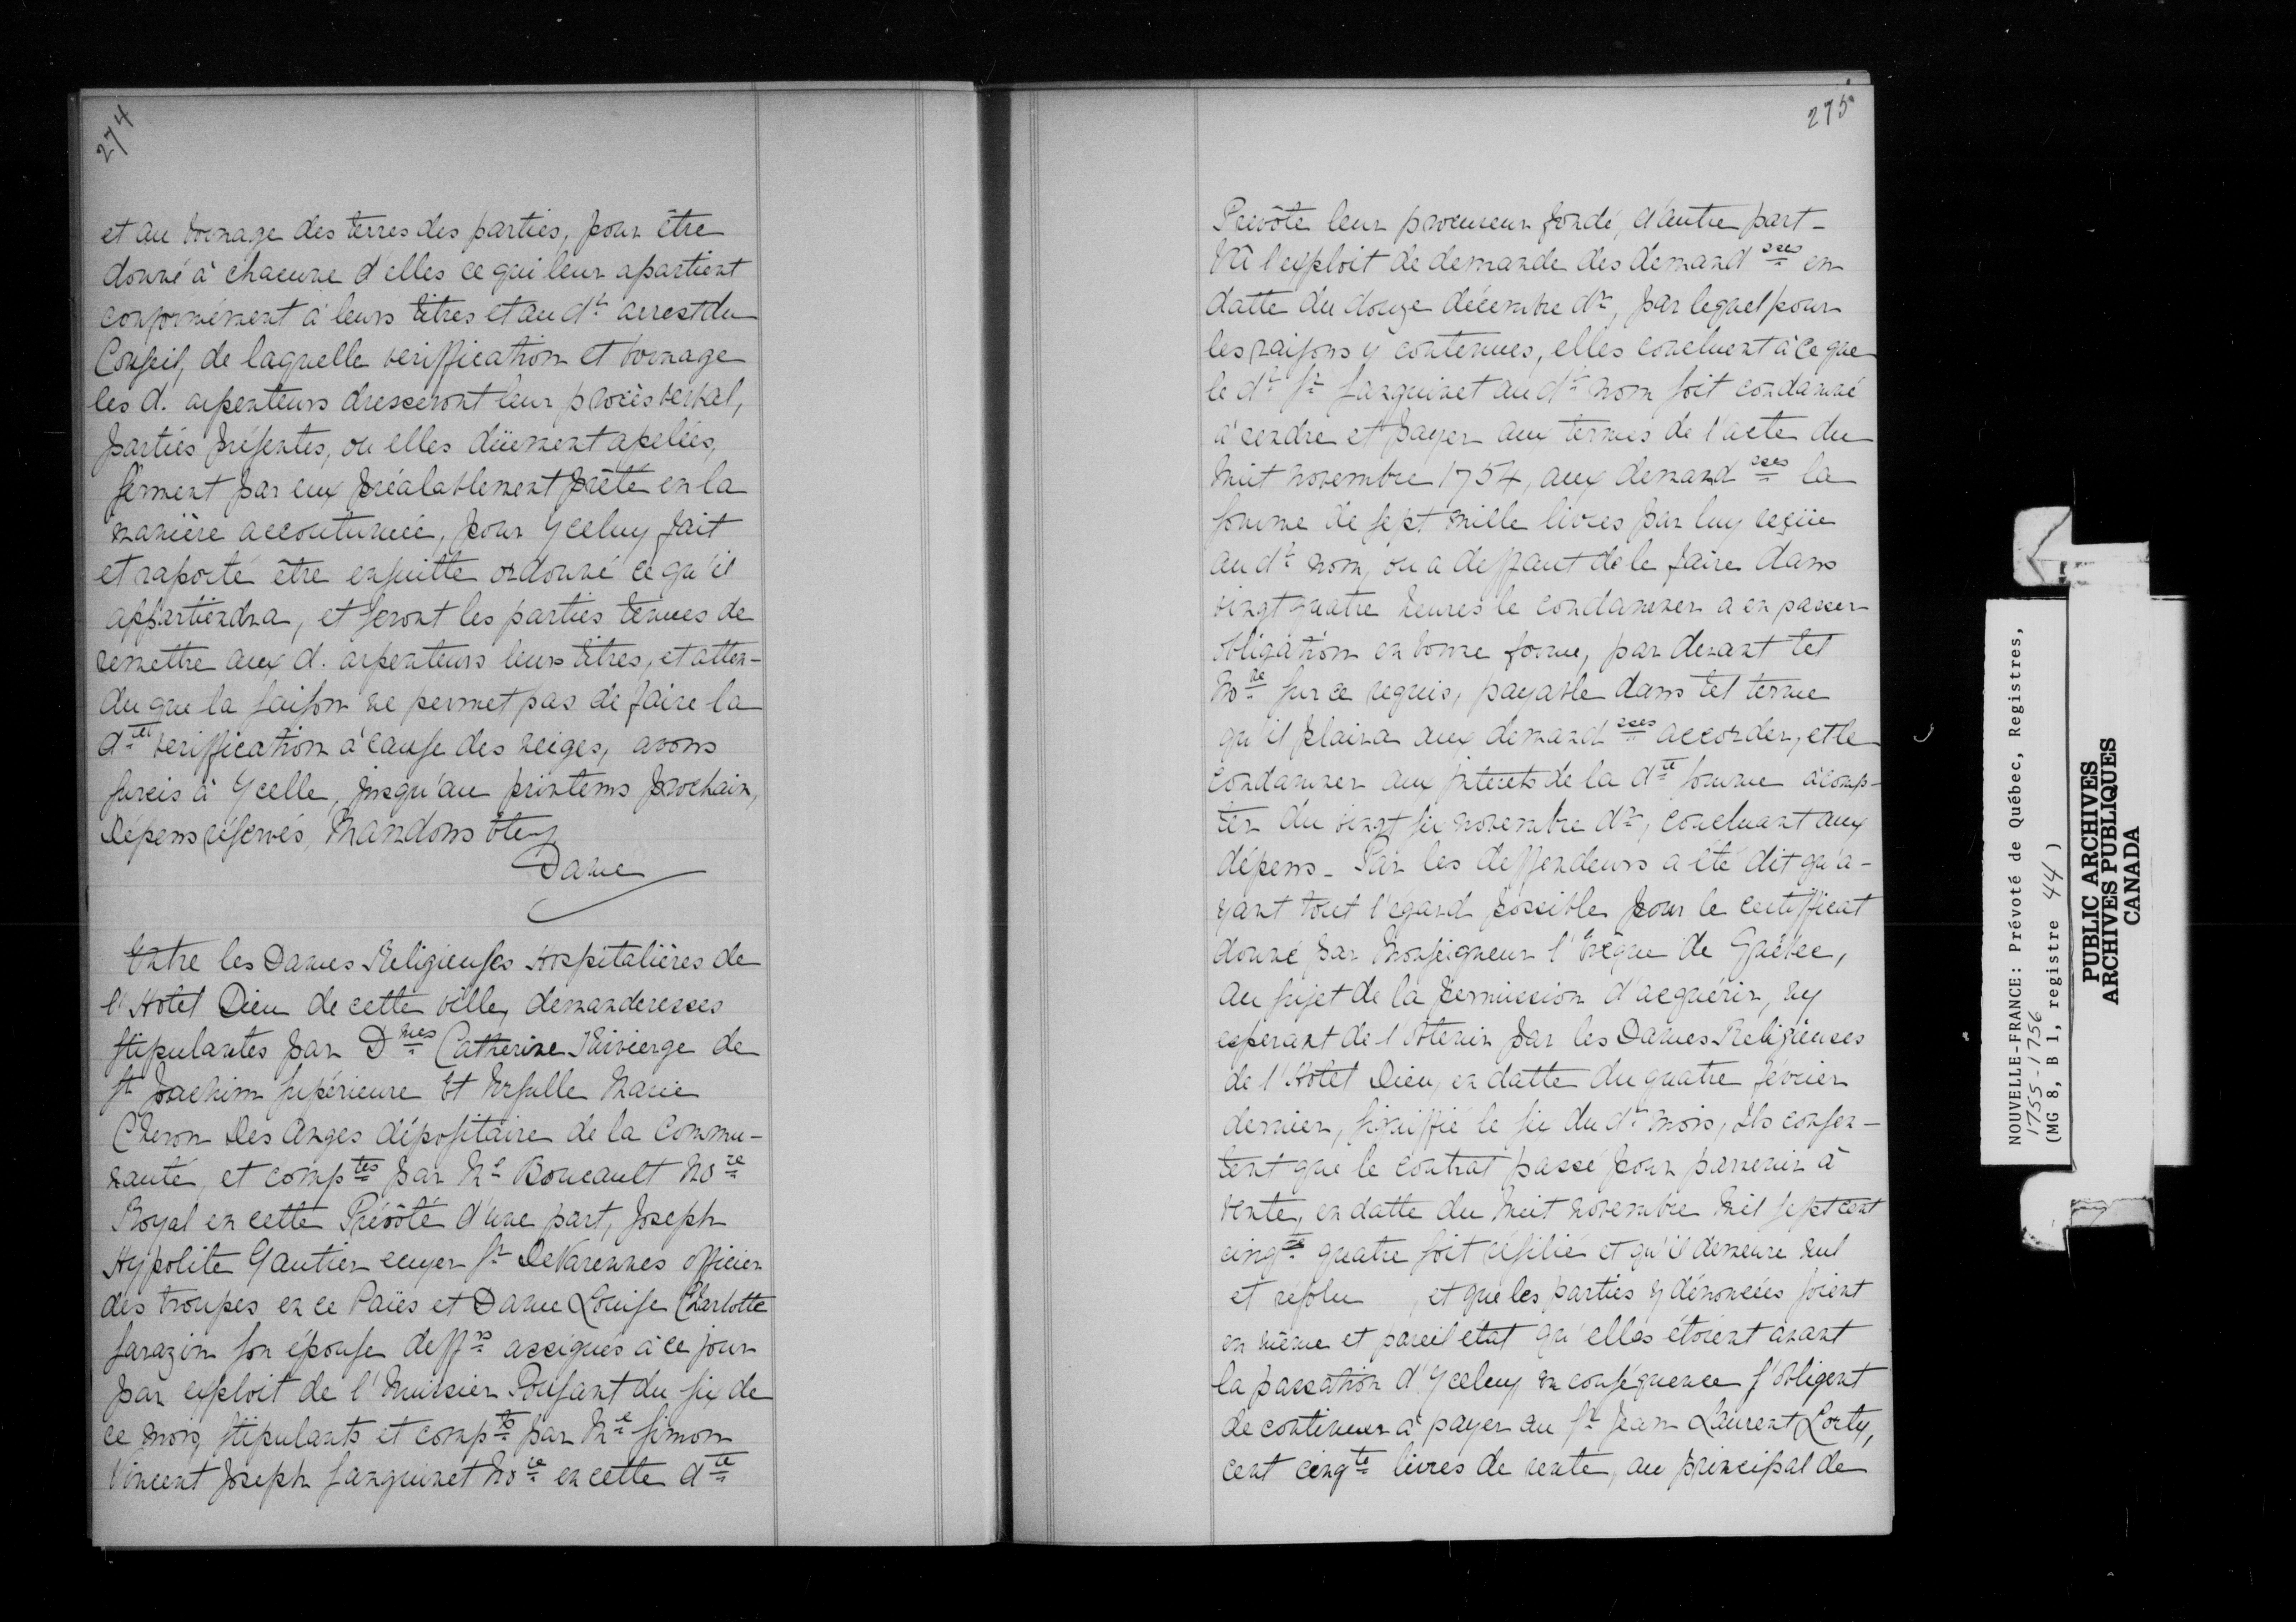 274
et au bornage des terres des parties, pour être
donné à chacune d'elles ce qui leur apartient
conformément à leurs titres et au dt. arrest du
Conseil, de laquelle veriffication et bornage
les d. arpenteurs dresseront leur procès verbal,
parties présentes, ou elles düement apelées,
serment par eux préalablement prêté en la
manière accoutumée, pour yceluy fait
et raporté être ensuitte ordonné ce qu'il
appartiendra, et seront les parties tenues de
remettre aux d. arpenteurs leurs titres, et atten-
du que la saison ne permet pas de faire la
dte veriffication à cause des neiges, avons
surcis à ycelle, jusqu'au printems prochain,
Dépens réservés, Mandons &tc
Daine
Entre les Dames Religieuses Hospitalières de
l'Hotel Dieu de cette ville, demanderesses
stipulantes par Dmes Catherine Thivierge de
St Joachim supérieure Et Ursulle Marie
Cheron Des Anges dépositaire de la Commu-
nauté, et comptes par Me Boucault Nore
Royal en cette Prévôté d'une part, Joseph
Hypolite Gautier ecuyer Sr DeVarennes officier
des troupes en ce Païes et Dame Louise Charlotte
Sarazin son épouse deffrs assignés à ce jour
par exploit de l'huissier Poufant du six de
ce mois, stipulants et compts par Me Simon
Vincent Joseph Sanguinet Nore en cette dte
275
Prévôté leur procureur fondé, d'autre part -
Vû l'exploit de demande des demandsses en
datte du douze décembre dr, par lequel pour
les raisons y contenues, elles concluent à ce que
le dt. Sr Sanguinet au dt. nom soit condamné
à rendre et payer aux termes de l'acte du
huit novembre 1754, aux demandsses la
somme de sept mille livres par luy reçüe
au dt. nom, ou a deffaut de le faire dans
vingt quatre heures le condamner a en passer
obligation en bonne forme, par devant tel
Nore sur ce requis, payable dans tel terme
qu'il plaira aux demandsses accorder, et le
condamner aux interets de la dte somme à comp-
ter du vingt six novembre dr, concluant aux
dépens - Par les deffendeurs a été dit qu'a-
yant tout l'égard possible pour le certifficat
donné par Monseigneur l'Evêque de Québec,
au sujet de la permission d'acquérir, ny
esperant de l'obtenir par les Dames Religieuses
de l'Hotel Dieu, en datte du quatre février
dernier, siniffié le six du dt. mois, ils consen-
tent que le contrat passé pour parvenir à
vente, en datte du huit novembre mil sept cent
cinqte quatre soit résilié et qu'il demeure nul
et résolu , et que les parties y dénoncées soient
en même et pareil état qu'elles étoient avant
la passation d'yceluy en conséquence s'obligent
de continuer à payer au Sr Jean Laurent Lorty,
cent cinqte livres de rente, au principal de
NOUVELLE-FRANCE: Prévoté de Québec, Registres,
1755-1756
(MG 8, B 1, registre 44)
PUBLIC ARCHIVES
ARCHIVES PUBLIQUES
CANADA